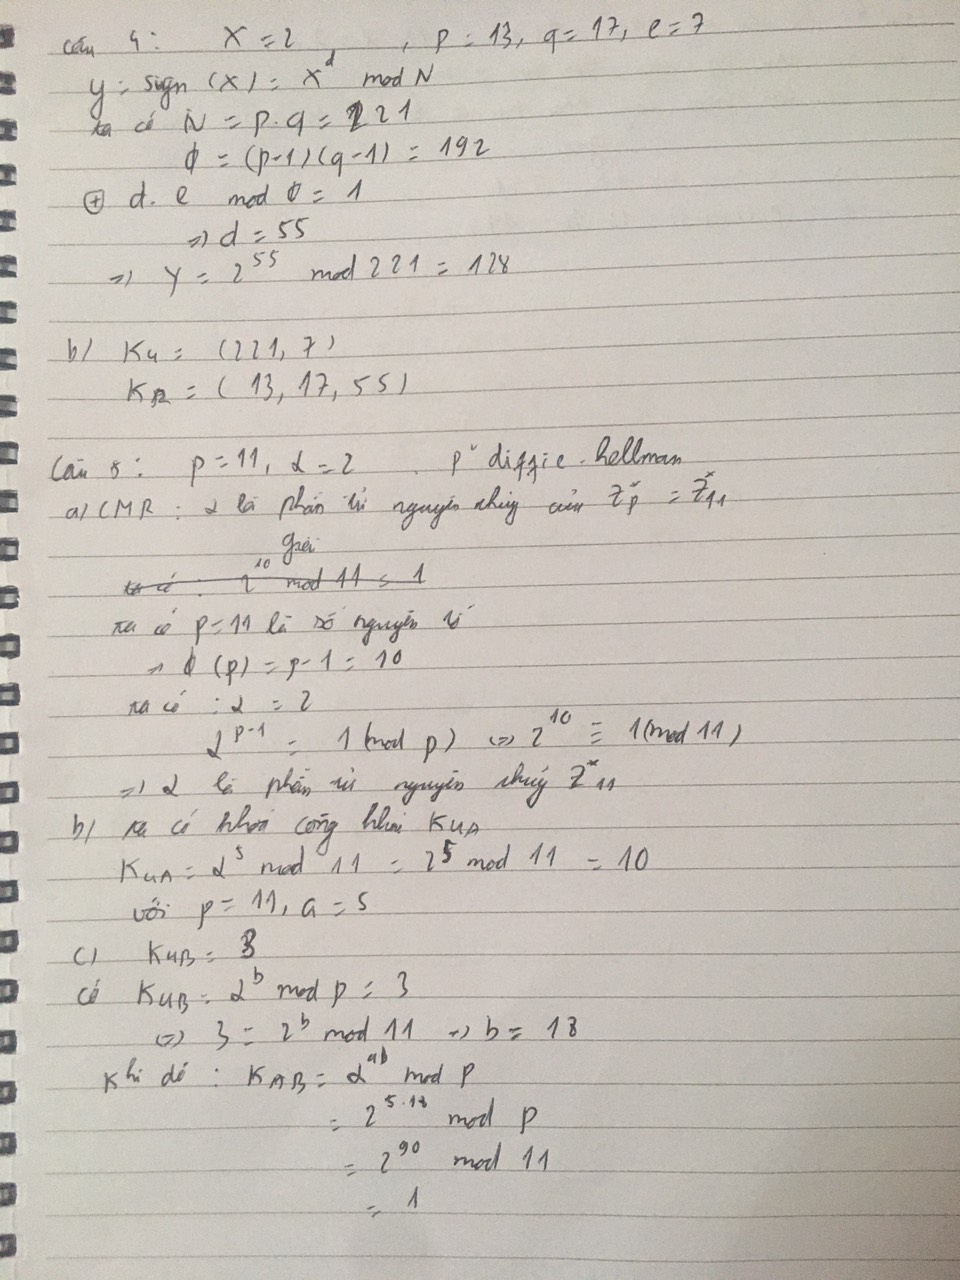 câu 4: X = 2, , p = 13, q = 17, e = 7
y = sign (X) = X^d mod N
ta có N = p.q = 221
ϕ = (p-1)(q-1) = 192
⊕ d. e mod ϕ = 1
=> d = 55
=> Y = 2^55 mod 221 = 128
b/ Ku = (221, 7)
KR = ( 13, 17, 55)
Câu 5: p = 11, α = 2 . diffie - hellman
a) CMR : α là phần tử nguyên thủy của Z*p = Z*11
Giải
ta có : 2^10 mod 11 = 1
ta có p = 11 là số nguyên tố
=> ϕ (p) = p-1 = 10
ta có : α = 2
α^p-1 = 1 (mod p) <=> 2^10 ≡ 1 (mod 11)
=> α là phần tử nguyên thuỷ Z*11
b/ ta có khoá công khai KUA
KUA = α^5 mod 11 = 2^5 mod 11 = 10
với p = 11, a = 5
c) KUB = 3
có KUB = α^b mod p = 3
<=> 3 = 2^b mod 11 => b = 18
Khi đó : KAB = α^ab mod p
= 2^5.18 mod p
= 2^90 mod 11
= 1